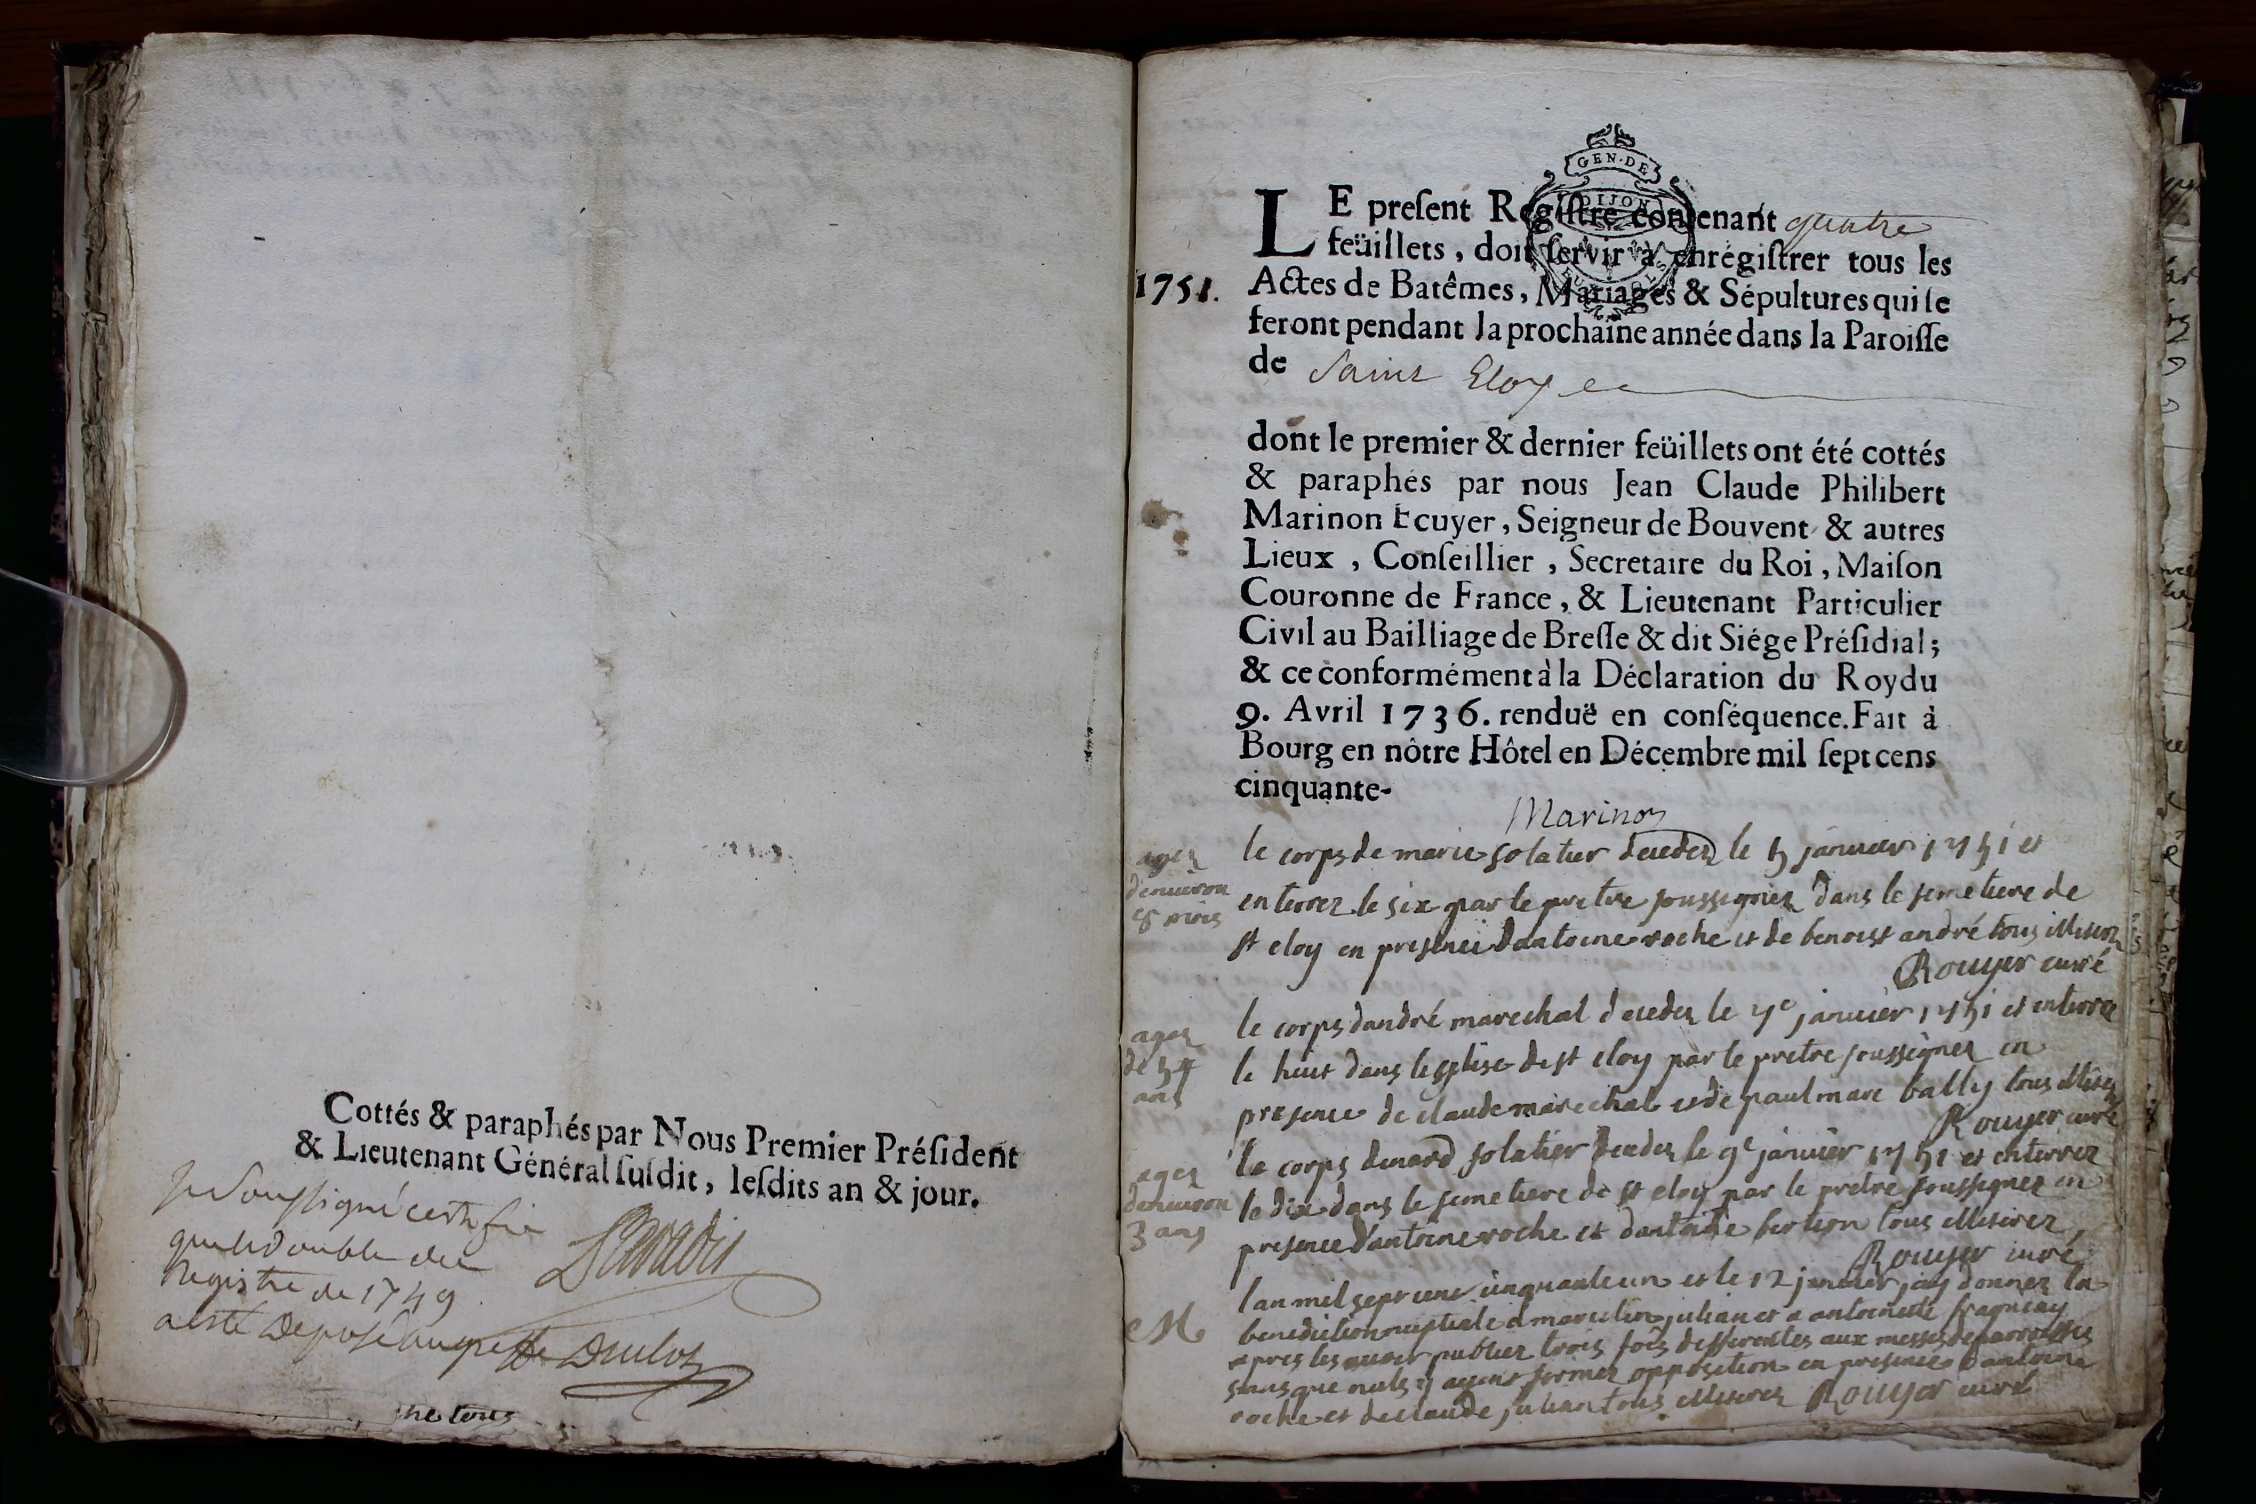 Cottés & paraphés par Nous Premier Préſident
& Lieutenant Général ſuſdit, leſdits an & jour.
Je Soussigné certifie
que le double du
Registre de 1749
a esté Deposé au greffe
GEN·DE
DIJON
LE preſent Regiſtre contenant quatre
feüillets, doit ſervir à enrégiſtrer tous les
1751.
Actes de Batêmes, Mariages & Sépultures qui ſe
feront pendant la prochaine année dans la Paroiſſe
de Saint Eloy
dont le premier & dernier feüillets ont été cottés
& paraphés par nous Jean Claude Philibert
Marinon Ecuyer, Seigneur de Bouvent & autres
Lieux, Conſeillier, Secretaire du Roi, Maiſon
Couronne de France, & Lieutenant Particulier
Civil au Bailliage de Breſſe & dit Siége Préſidial;
& ce conformément à la Déclaration du Roy du
9. Avril 1736. renduë en conſéquence. Fait à
Bourg en nôtre Hôtel en Décembre mil ſept cens
cinquante-
Marinon
agez
denuiron
8 mois
le corps de marie solatier decedez le 5 januier 1751 et
enterrez le six par le pretre soussignez dans le semetiere de
st eloy en presence dantoine roche et de benoist andré tous illiterez
Rouyer curé
agez
de 54
ans
le corps dandré marechal decedez le 7e januier 1751 et enterrez
le huit dans leglise de st eloy par le pretre soussignez en
presence de claude marechal et de paul marc bally tous illiterez
Rouyer curé
agez
denuiron
3 ans
le corps solatier decedez le 9e januier 1751 et enterrez
le dix dans le semetiere de st eloy par le pretre soussignez en
presence dantoine roche et dantoine bertion tous illiterez
Rouyer curé
M
lan mil sept cent cinquante un et le 12 januier jay donnez la
benediction nuptiale a marcelin julian et a antoinette
apres les auoir publiez trois fois differentes aux messes de parroisses
sans que nuls y ayent formez opposition en presence dantoine
roche et de claude julian tous illiterez Rouyer curé